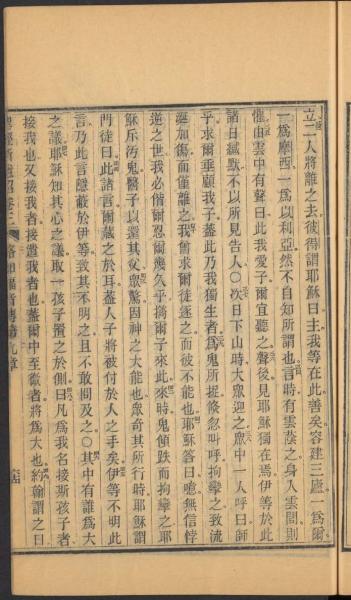 立二人將離之去彼得謂耶穌曰主我等在此善矣容建三廬一爲爾
一爲摩西一爲以利亞然不自知所謂也言時有雲蔭之身入雲間則
懼由雲中有聲曰此我愛子爾宜聽之聲後見耶穌獨在焉伊等於此
諸日緘默不以所見告人○次日下山時大衆迎之衆中一人呼曰師
乎求爾垂顧我子蓋此乃我獨生者爲鬼所提倏忽叫呼拘攣之致流
涎加傷而僅離之我曾求爾徒逐之而彼不能也耶穌答曰噫無信悖
逆之世我必偕爾忍爾幾久乎攜爾子來此來時鬼傾跌而拘攣之耶
穌斥污鬼醫子以還其父衆驚因神之大能也衆奇其所行時耶穌謂
門徒曰此諸言爾藏之於耳蓋人子將被付於人之手矣伊等不明此
言乃此言隱蔽於伊等致其不明之且不敢問及之○其中有議誰爲大
之議耶穌知其心之議取一孩子置之於側曰凡爲我名接斯孩子者
接我也又接我者接遣我者也蓋爾中至微者將爲大也約翰謂之曰
路加福音傳第九章